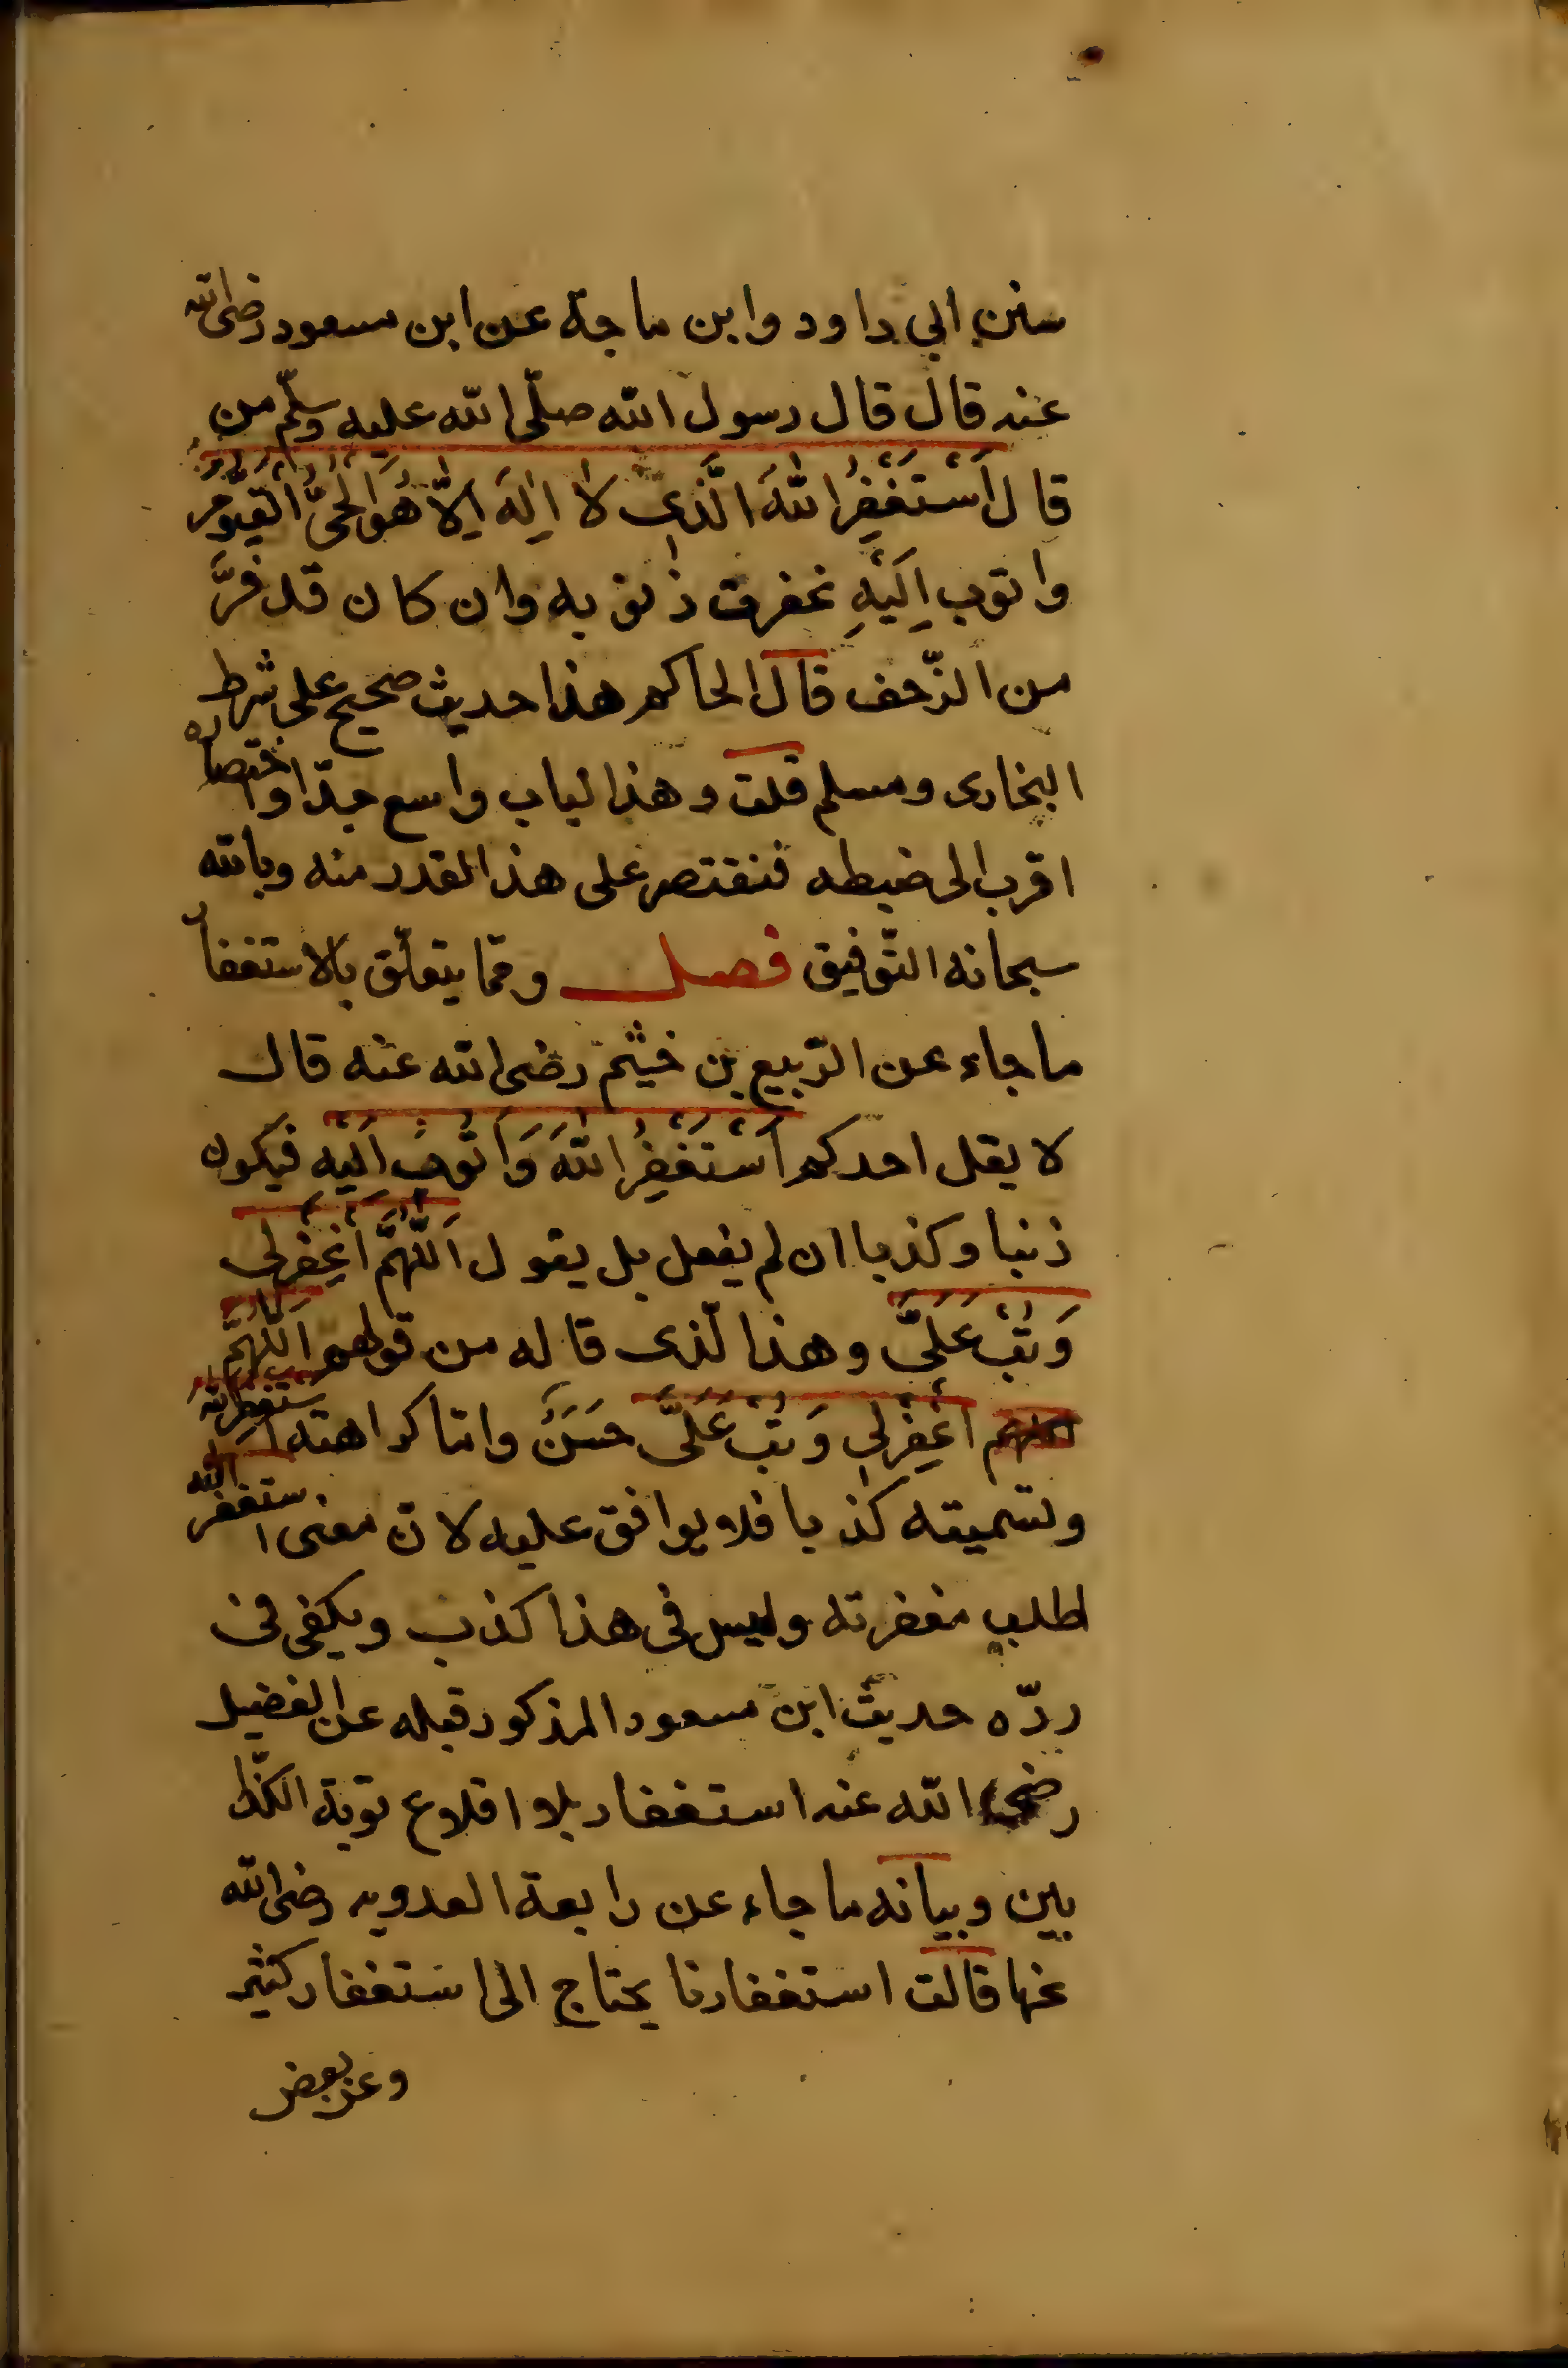 سنن ابي داود وابن ماجة عن ابن مسعود رضى الله
عنه قال قال رسول الله صلّى الله عليه وسلّم من
قال اَسْتَغْفِرُ اللهَ الَّذِى لا اِلهَ اِلّا هُوَ الحَىُّ القَيُّومُ
واتوب اِلَيْهِ غفرت ذنوبه وان كان قد فرَّ
من الزّحف قال الحاكم هذا حديث صحيح على شرط
البخارى ومسلم قلت وهذا لباب واسع جدّا واختصاره
اقرب الى ضبطه فنقتصر على هذا لقدر منه وبالله
سبحانه التّوفيق فصل وممّا يتعلّق بالاستغفار
ما جاء عن الرّبيع بن خيثم رضى الله عنه قال
لا يقل احدكم اَسْتَغْفِرُ اللهَ وَاَتُوبُ اِلَيْه فيكون
ذنبا وكذبا ان لم يفعل بل يقول اَللّهُمَّ اغْفِرْلِى
وَتُبْ عَلَىَّ وهذا لّذى قاله من قولهم اَللّهُمَّ
اغْفِرْلِى وَتُبْ عَلَىَّ حَسَنٌ وامّا كراهته استغفر الله
وتسميته كذبا فلا يوافق عليه لانّ معنى استغفر الله
اطلب مغفرته وليس فى هذا كذب ويكفى فى
ردّه حديث ابن مسعود المذكور قبله عن الفضيل
رضى الله عنه استغفار بلا اقلاع توبة الكذّا
بين وبيانه ما جاء عن رابعة العدويه رضى الله
عنها قالت استغفارنا يحتاج الى استغفار كثير
وعن بعض